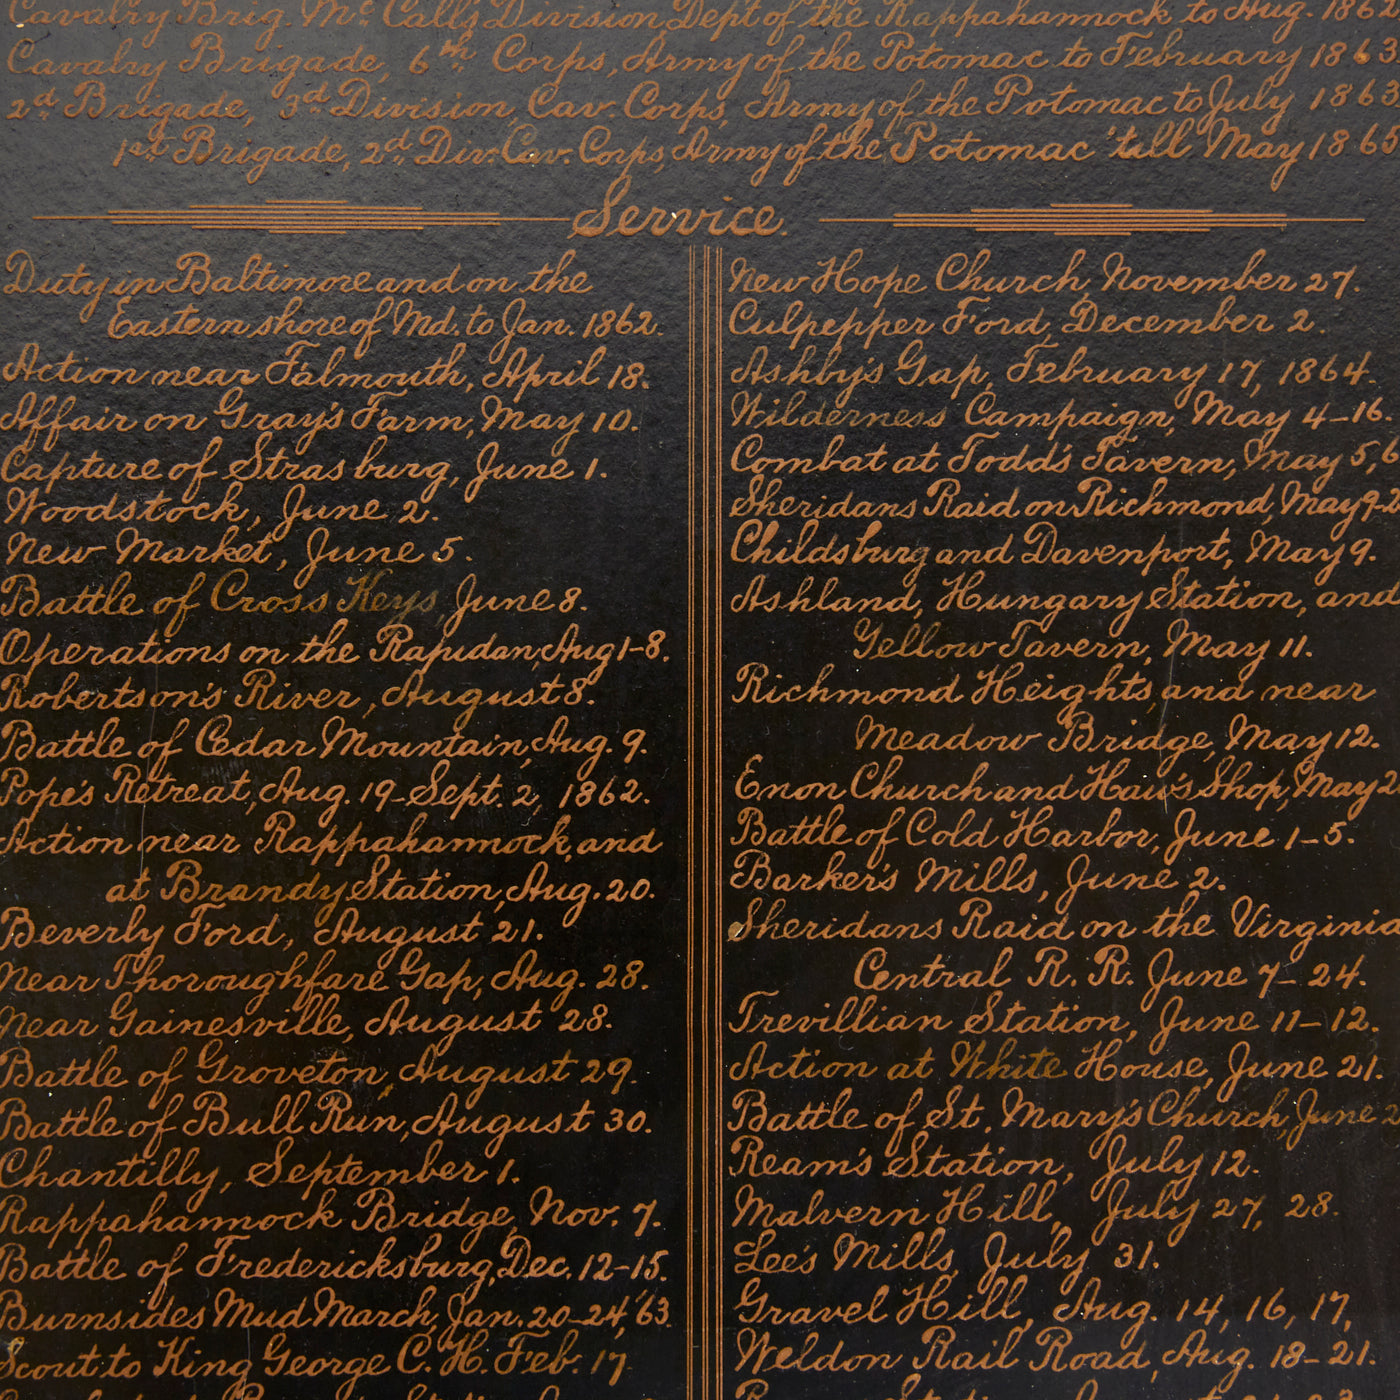 Cavalry Brig. Mc Call's Division Dept of the Rappahannock to Aug. 1862
Cavalry Brigade, 6th Corps, Army of the Potomac to February 1863
2d Brigade, 3d Division, Cav. Corps, Army of the Potomac to July 186
1st Brigade, 2d Div. Cav. Corps, Army of the Potomac 'till May 186
Service.
Duty in Baltimore and on the
Eastern shore of Md. to Jan. 1862.
Action near Falmouth, April 18.
Affair on Gray's Farm, May 10.
Capture of Strasburg, June 1.
Woodstock, June 2.
New Market, June 5.
Battle of Cross Keys, June 8.
Operations on the Rapidan, Aug 1-8.
Robertson's River, August 8.
Battle of Cedar Mountain, Aug. 9.
Pope's Retreat, Aug. 19-Sept. 2, 1862.
Action near Rappahannock, and
at Brandy Station, Aug. 20.
Beverly Ford, August 21.
Near Thoroughfare Gap, Aug. 28.
Near Gainesville, August 28.
Battle of Groveton, August 29.
Battle of Bull Run, August 30.
Chantilly, September 1.
Rappahannock Bridge, Nov. 7.
Battle of Fredericksburg, Dec. 12-15.
Burnsides Mud March, Jan. 20-24, '63.
Scout to King George C. H. Feb. 17
New Hope Church, November 27.
Culpepper Ford, December 2.
Ashby's Gap, February 17, 1864.
Wilderness Campaign, May 4-16.
Combat at Todd's Tavern, May 5, 6
Sheridans Raid on Richmond, May 9-
Childsburg and Davenport, May 9.
Ashland, Hungary Station, and
Yellow Tavern, May 11.
Richmond Heights, and near
Meadow Bridge, May 12.
Enon Church and Haw's Shop, May 2
Battle of Cold Harbor, June 1-5.
Barker's Mills, June 2.
Sheridans Raid on the Virginia
Central R. R. June 7-24.
Trevillian Station, June 11-12.
Action at White House, June 21.
Battle of St. Mary's Church, June
Ream's Station, July 12.
Malvern Hill, July 27, 28.
Lee's Mills, July 31.
Gravel Hill, Aug. 14, 16, 17,
Weldon Rail Road, Aug. 18-21.